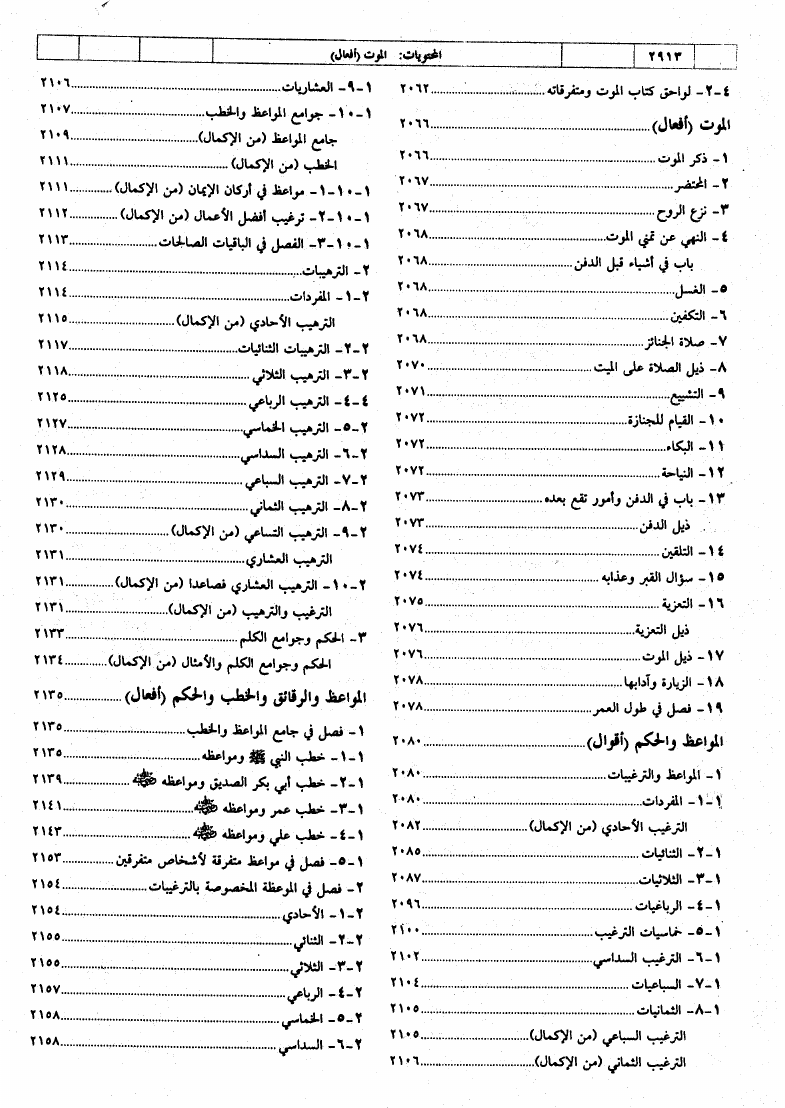 ٢٩١٣ المحتويات: الموت (أفعال)
٤-٢- لواحق كتاب الموت ومتفرقاته ٢٠٦٢
الموت (أفعال) ٢٠٦٦
١- ذكر الموت ٢٠٦٦
٢- المحتضر ٢٠٦٧
٣- نزع الروح ٢٠٦٧
٤- النهي عن تمني الموت ٢٠٦٨
باب في أشياء قبل الدفن ٢٠٦٨
٥- الغسل ٢٠٦٨
٦- التكفين ٢٠٦٨
٧- صلاة الجنائز ٢٠٦٨
٨- ذيل الصلاة على الميت ٢٠٧٠
٩- التشييع ٢٠٧١
١٠- القيام للجنازة ٢٠٧٢
١١- البكاء ٢٠٧٢
١٢- النياحة ٢٠٧٢
١٣- باب في الدفن وأمور تقع بعده ٢٠٧٣
ذيل الدفن ٢٠٧٣
١٤- التلقين ٢٠٧٤
١٥- سؤال القبر وعذابه ٢٠٧٤
١٦- التعزية ٢٠٧٥
ذيل التعزية ٢٠٧٦
١٧- ذيل الموت ٢٠٧٦
١٨- الزيارة وآدابها ٢٠٧٨
١٩- فصل في طول العمر ٢٠٧٨
المواعظ والحكم (أقوال) ٢٠٨٠
١- المواعظ والترغيبات ٢٠٨٠
١-١- المفردات ٢٠٨٠
الترغيب الأحادي (من الإكمال) ٢٠٨٢
١-٢- الثنائيات ٢٠٨٥
١-٣- الثلاثيات ٢٠٨٧
١-٤- الرباعيات ٢٠٩٦
١-٥- خماسيات الترغيب ٢١٠٠
١-٦- الترغيب السداسي ٢١٠٢
١-٧- السباعيات ٢١٠٤
١-٨- الثمانيات ٢١٠٥
الترغيب السباعي (من الإكمال) ٢١٠٥
الترغيب الثماني (من الإكمال) ٢١٠٦
١-٩- العشاريات ٢١٠٦
١-١٠- جوامع المواعظ والخطب ٢١٠٧
جامع المواعظ (من الإكمال) ٢١٠٩
الخطب (من الإكمال) ٢١١١
١-١٠-١- مواعظ في أركان الإيمان (من الإكمال) ٢١١١
١-١٠-٢- ترغيب أفضل الأعمال (من الإكمال) ٢١١٢
١-١٠-٣- الفصل في الباقيات الصالحات ٢١١٣
٢- الترهيبات ٢١١٤
٢-١- المفردات ٢١١٤
الترهيب الأحادي (من الإكمال) ٢١١٥
٢-٢- الترهيبات الثنائيات ٢١١٧
٢-٣- الترهيب الثلاثي ٢١١٨
٤-٤- الترهيب الرباعي ٢١٢٥
٢-٥- الترهيب الخماسي ٢١٢٧
٢-٦- الترهيب السداسي ٢١٢٨
٢-٧- الترهيب السباعي ٢١٢٩
٢-٨- الترهيب الثماني ٢١٣٠
٢-٩- الترهيب التساعي (من الإكمال) ٢١٣٠
الترهيب العشاري ٢١٣١
٢-١٠- الترهيب العشاري فصاعدا (من الإكمال) ٢١٣١
الترغيب والترهيب (من الإكمال) ٢١٣١
٣- الحكم وجوامع الكلم ٢١٣٣
الحكم وجوامع الكلم والأمثال (من الإكمال) ٢١٣٤
المواعظ والرقائق والخطب والحكم (أفعال) ٢١٣٥
١- فصل في جامع المواعظ والخطب ٢١٣٥
١-١- خطب النبي ﷺ ومواعظه ٢١٣٥
١-٢- خطب أبي بكر الصديق ومواعظه ٢١٣٩
١-٣- خطب عمر ومواعظه ٢١٤١
١-٤- خطب علي ومواعظه ٢١٤٣
١-٥- فصل في مواعظ متفرقة لأشخاص متفرقين ٢١٥٣
٢- فصل في الموعظة المخصوصة بالترغيبات ٢١٥٤
٢-١- الأحادي ٢١٥٤
٢-٢- الثنائي ٢١٥٥
٢-٣- الثلاثي ٢١٥٥
٢-٤- الرباعي ٢١٥٧
٢-٥- الخماسي ٢١٥٨
٢-٦- السداسي ٢١٥٨